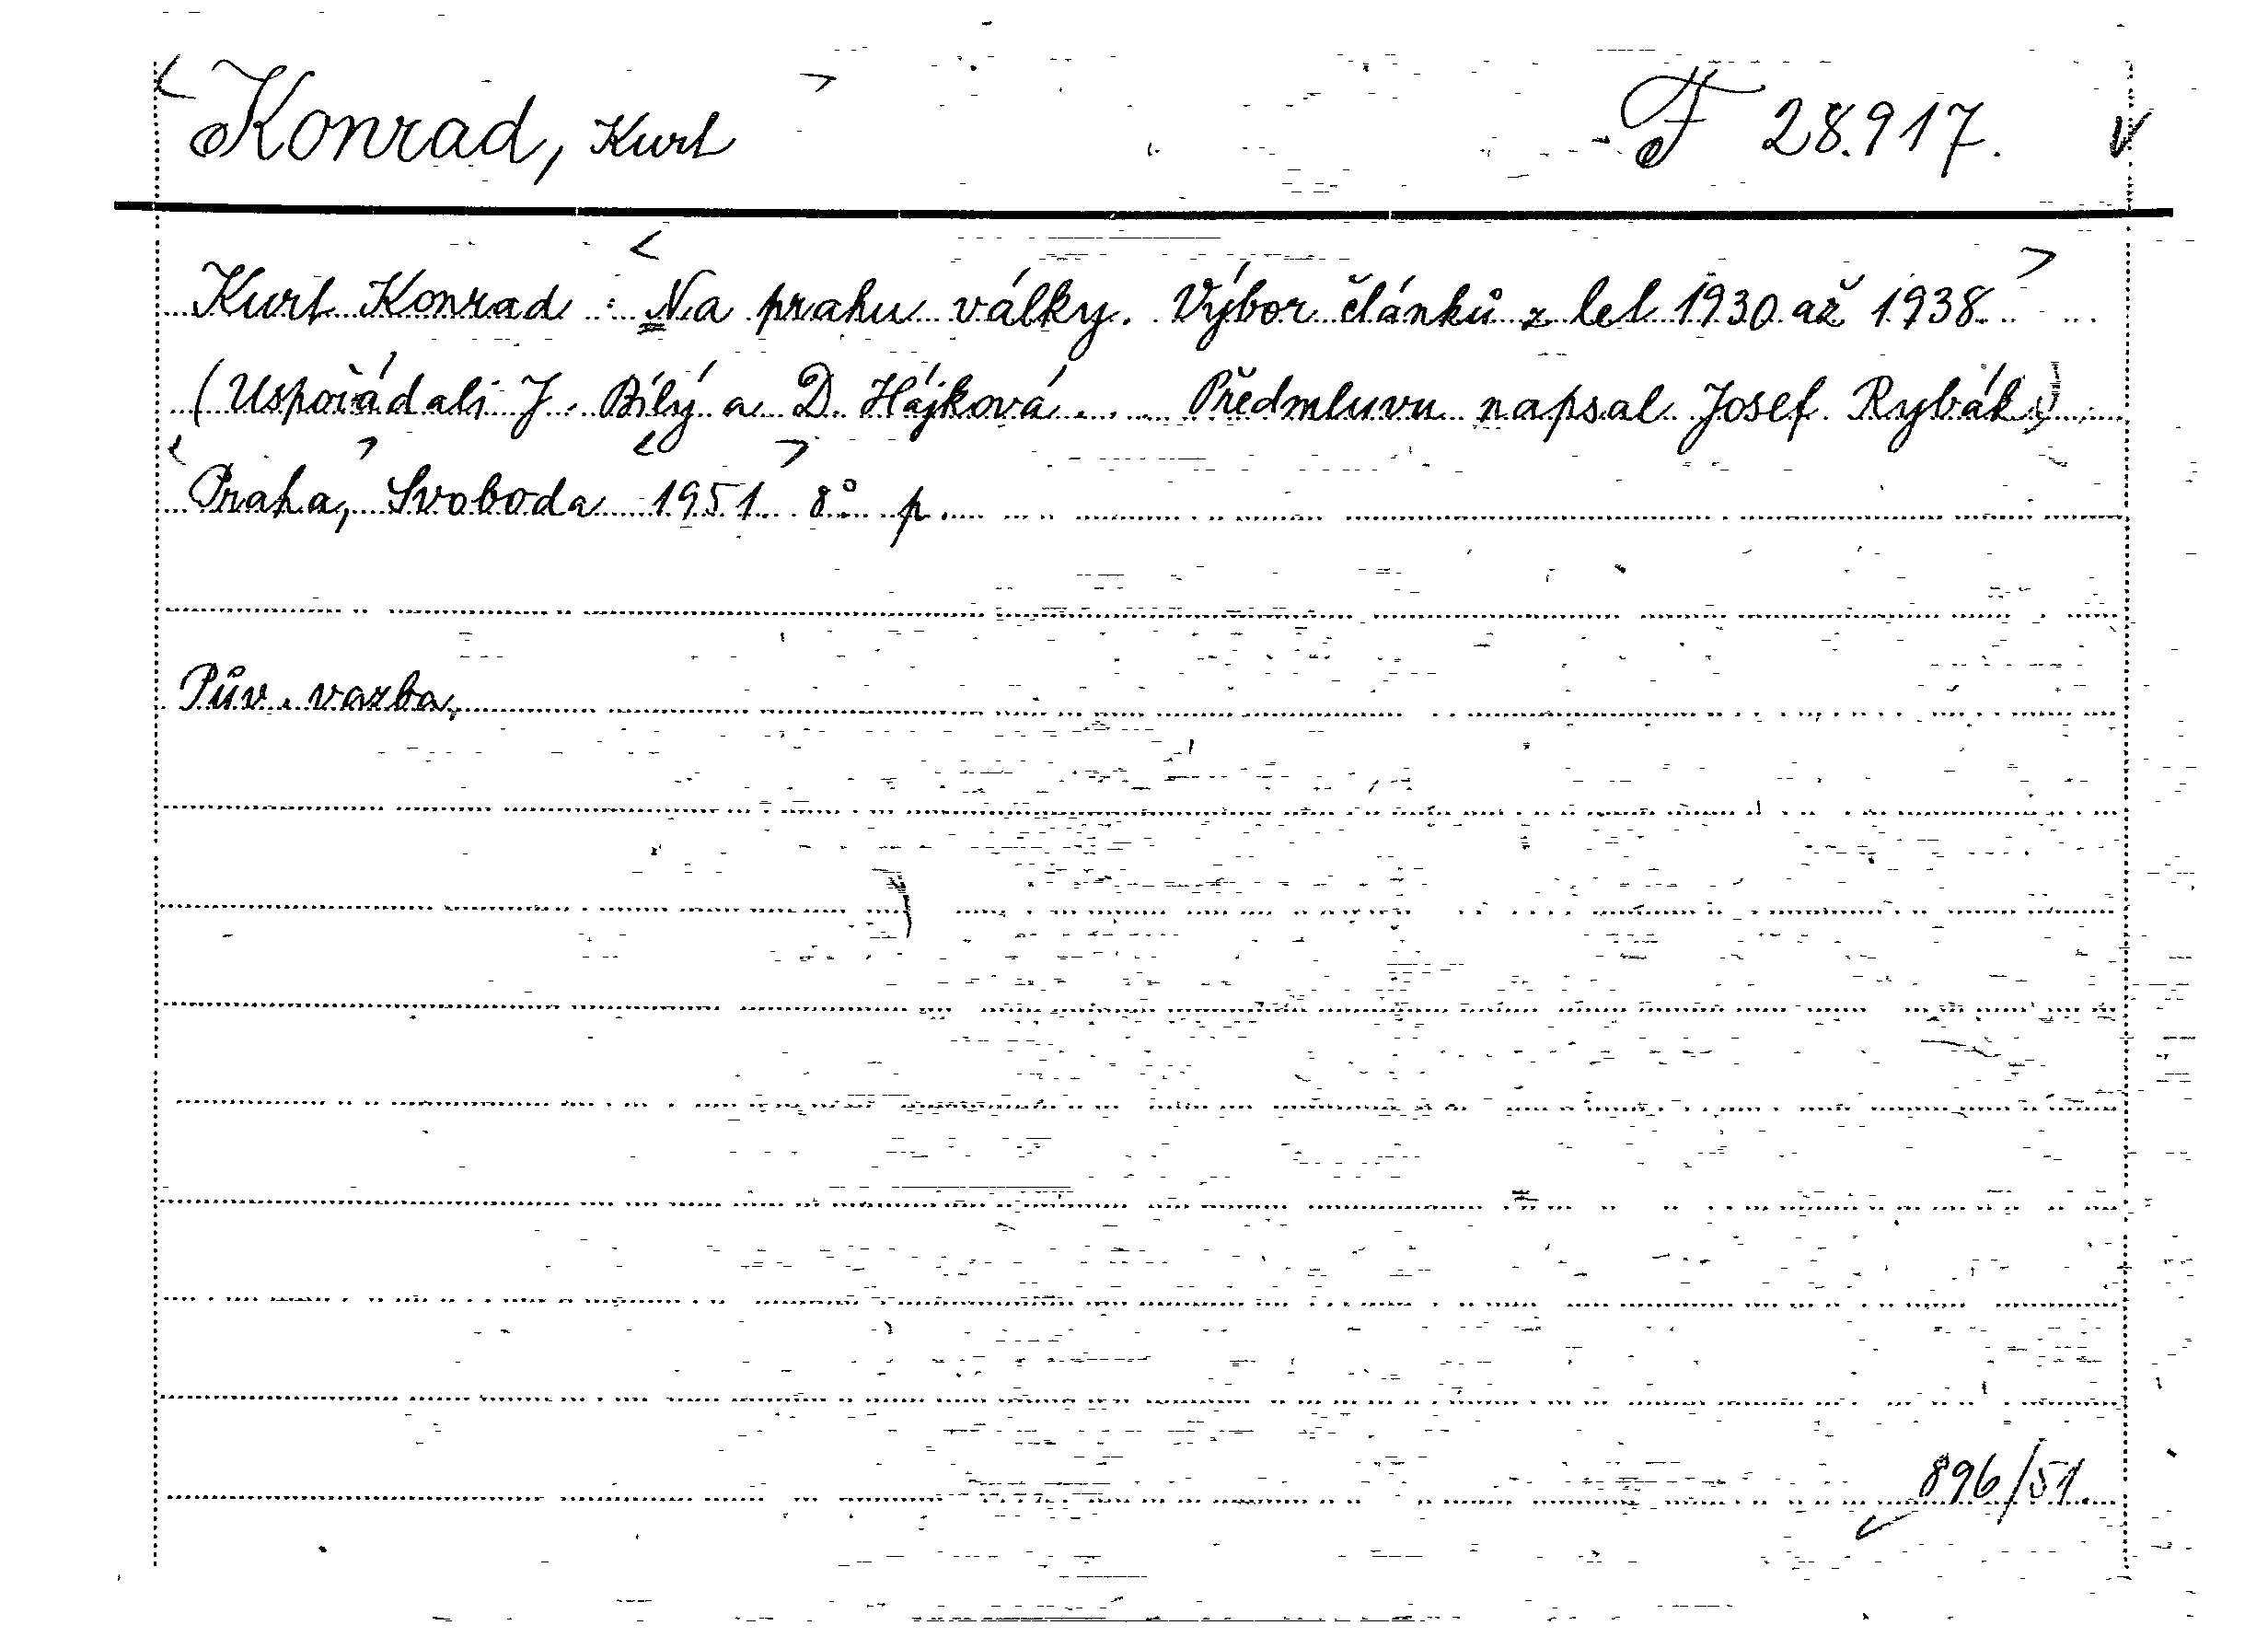 Konrad, Kurt F 28.917.
Kurt Konrad : Na prahu války. Výbor článků z let 1930 až 1938
(Uspořádali J. Bílý a D. Hájková. . Předmluvu napsal Josef Rybák)
Praha, Svoboda 1951. 8° p.
Pův. vazba.
896/51.